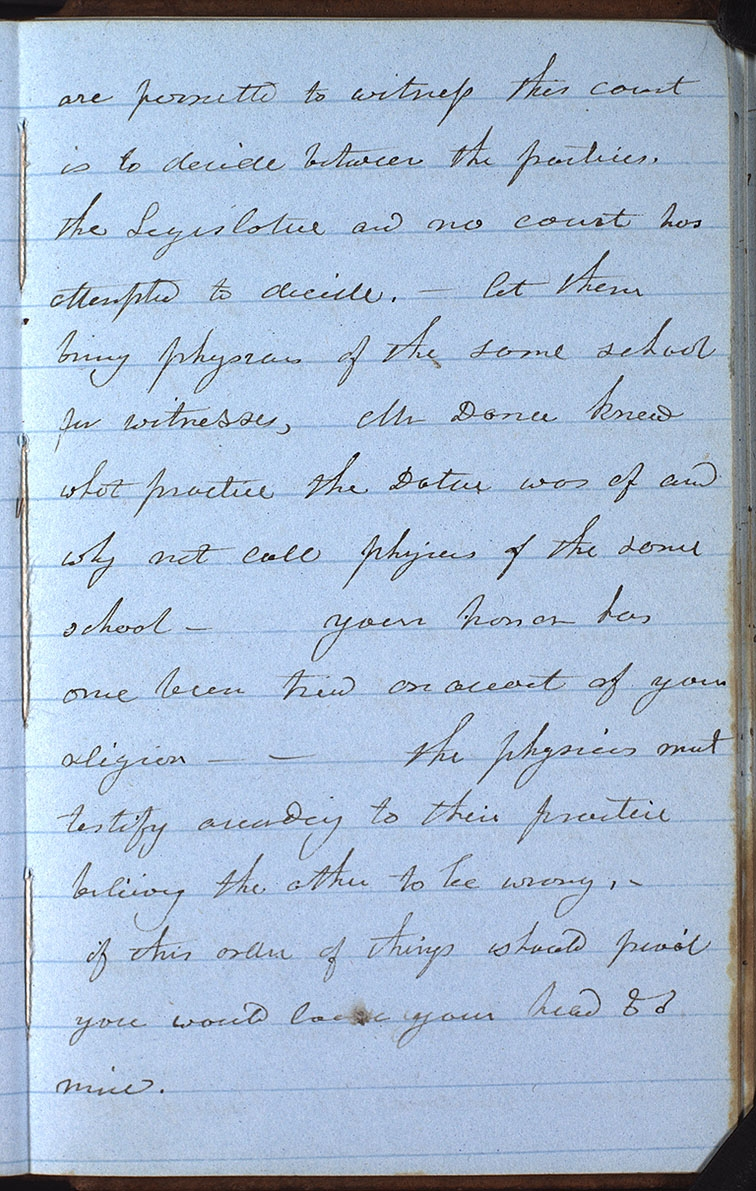 are permitted to witness this court
is to decide between the parties.
the Legislature and no court has
attempted to decide. — let them
bring physicians of the same school
for witnesses, Mr Dana knew
what practice the Doctor was of and
why not call physicians of the same
school — your honor has
once been tried on account of your
religion — — the physicians must
testify according to their practice
believing the other to be wrong, —
if this order of things should prevail
you would loose your head &
mine.